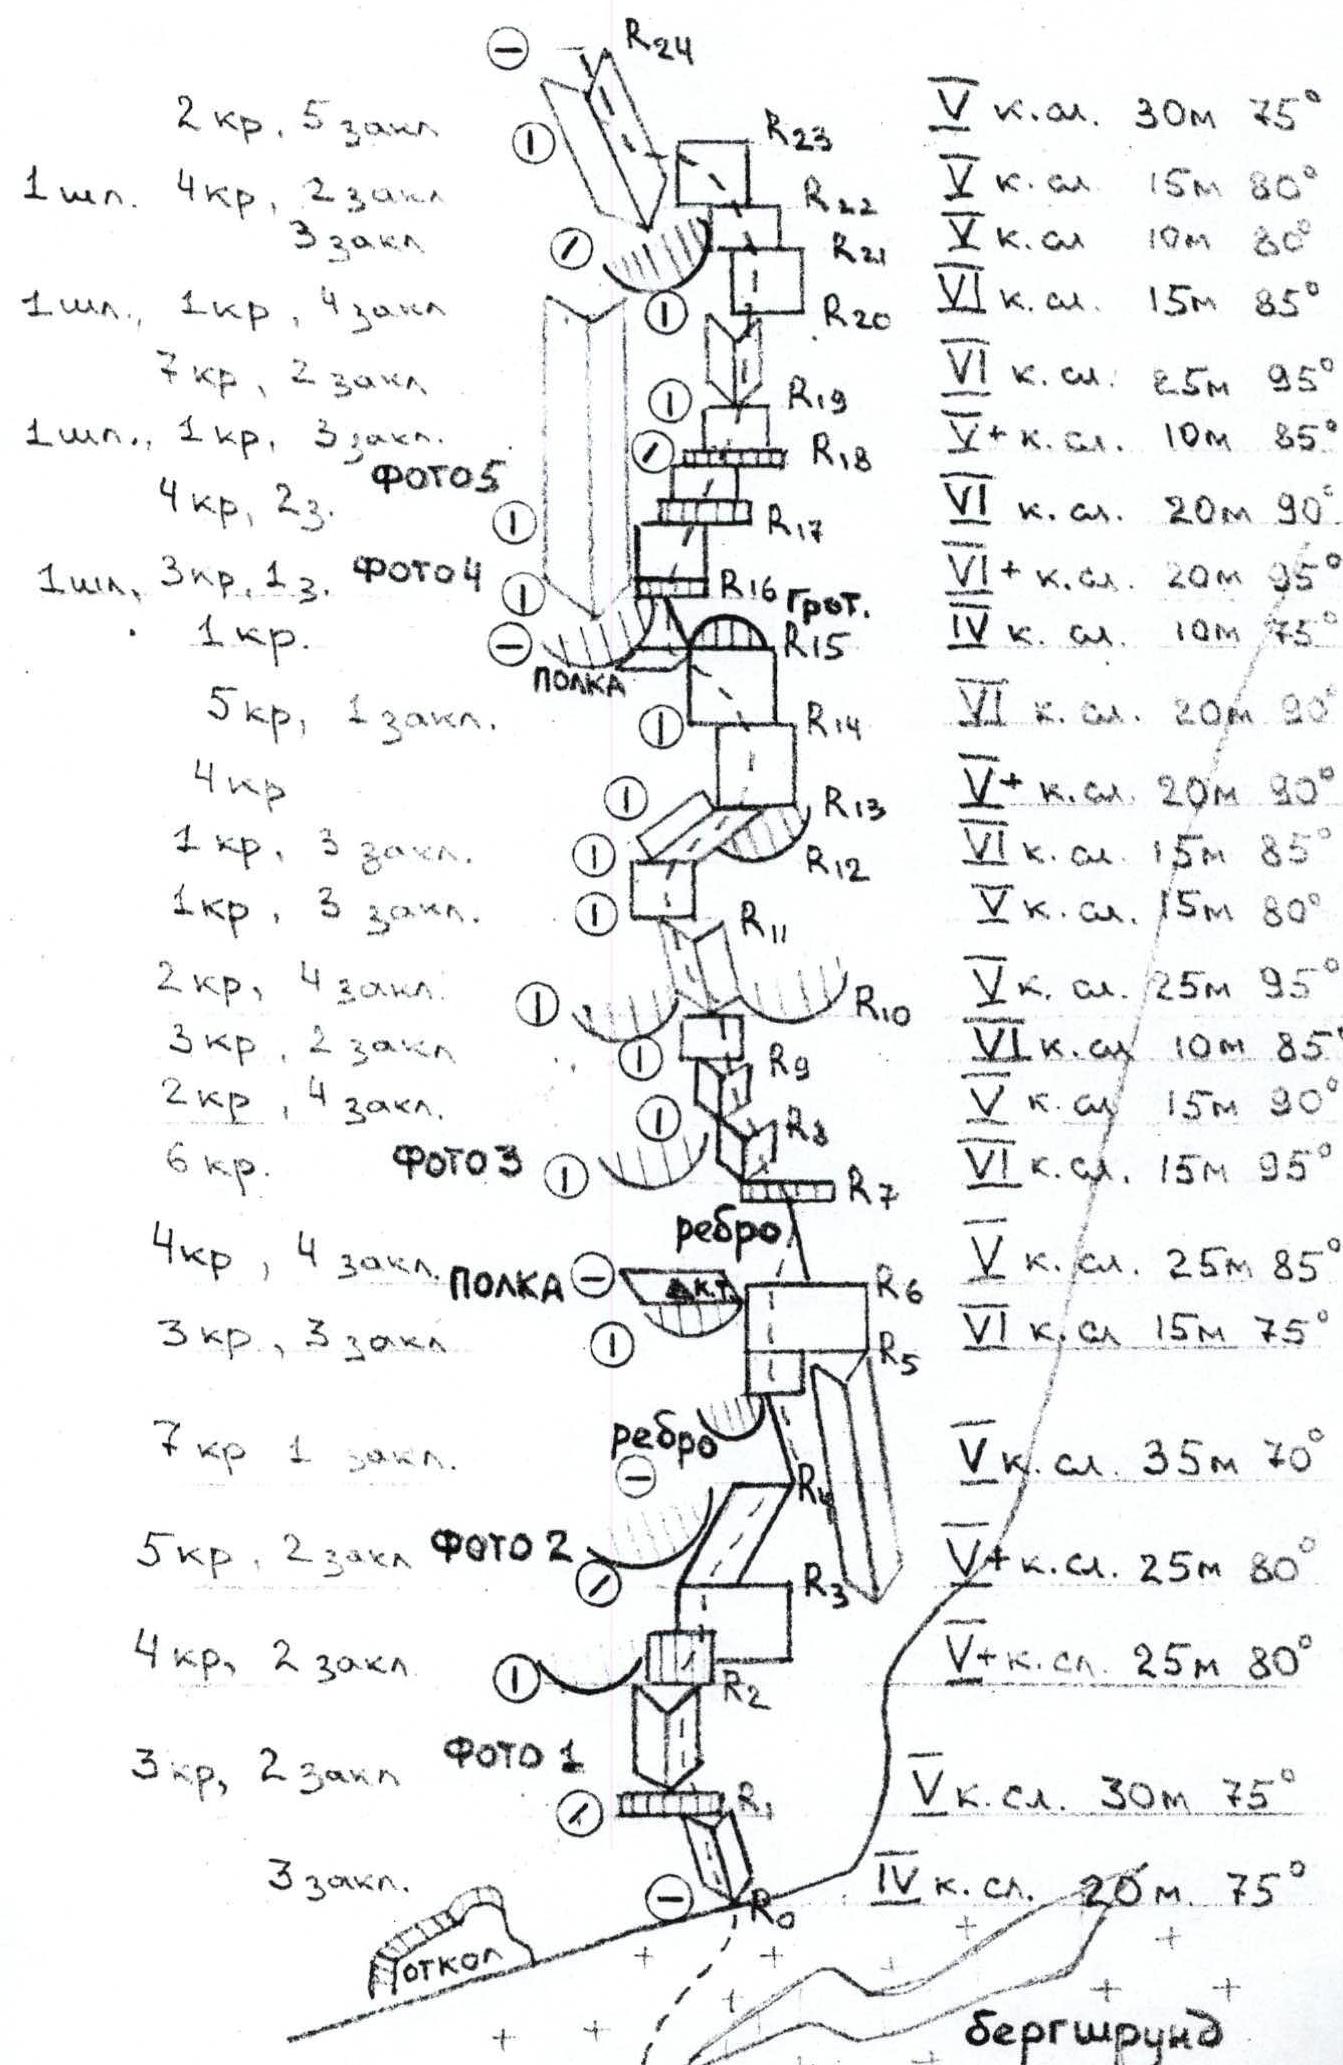 R24
2 кр, 5 закл V к.сл. 30м 75°
R23
1 шл. 4кр, 2 закл R22 V к.сл 15м 80°
3 закл R21 V к.сл 10м 80°
1шл., 1кр, 4 закл R20 VI к.сл. 15м 85°
7кр, 2 закл R19 VI к.сл. 25м 95°
1шл., 1кр, 3 закл. R18 V+ к.сл. 10м 85°
ФОТО5
4кр, 2з. R17 VI к.сл. 20м 90°
1шл, 3кр, 1з. ФОТО4 R16 VI+ к.сл. 20м 95°
Грот.
1кр. R15 IV к.сл. 10м 75°
ПОЛКА
5кр, 1 закл. R14 VI к.сл. 20м 90°
4кр R13 V+ к.сл. 20м 90°
1 кр, 3 закл. R12 VI к.сл. 15м 85°
1кр, 3 закл. R11 V к.сл. 15м 80°
2кр, 4 закл. R10 V к.сл. 25м 95°
3кр, 2 закл R9 VI к.сл 10м 85°
2кр, 4 закл. R8 V к.сл 15м 90°
6 кр. ФОТО3 R7 VI к.сл. 15м 95°
ребро
4кр, 4 закл. V к.сл. 25м 85°
ПОЛКА к.т. R6
3кр, 3 закл R5 VI к.сл 15м 75°
ребро
7кр 1 закл. R4 V к.сл. 35м 70°
5кр, 2 закл ФОТО 2 R3 V+ к.сл. 25м 80°
4кр, 2 закл R2 V+ к.сл. 25м 80°
ФОТО 1
3кр, 2 закл R1 V к.сл. 30м 75°
3 закл. R0 IV к.сл. 20м. 75°
откол
бергшрунд